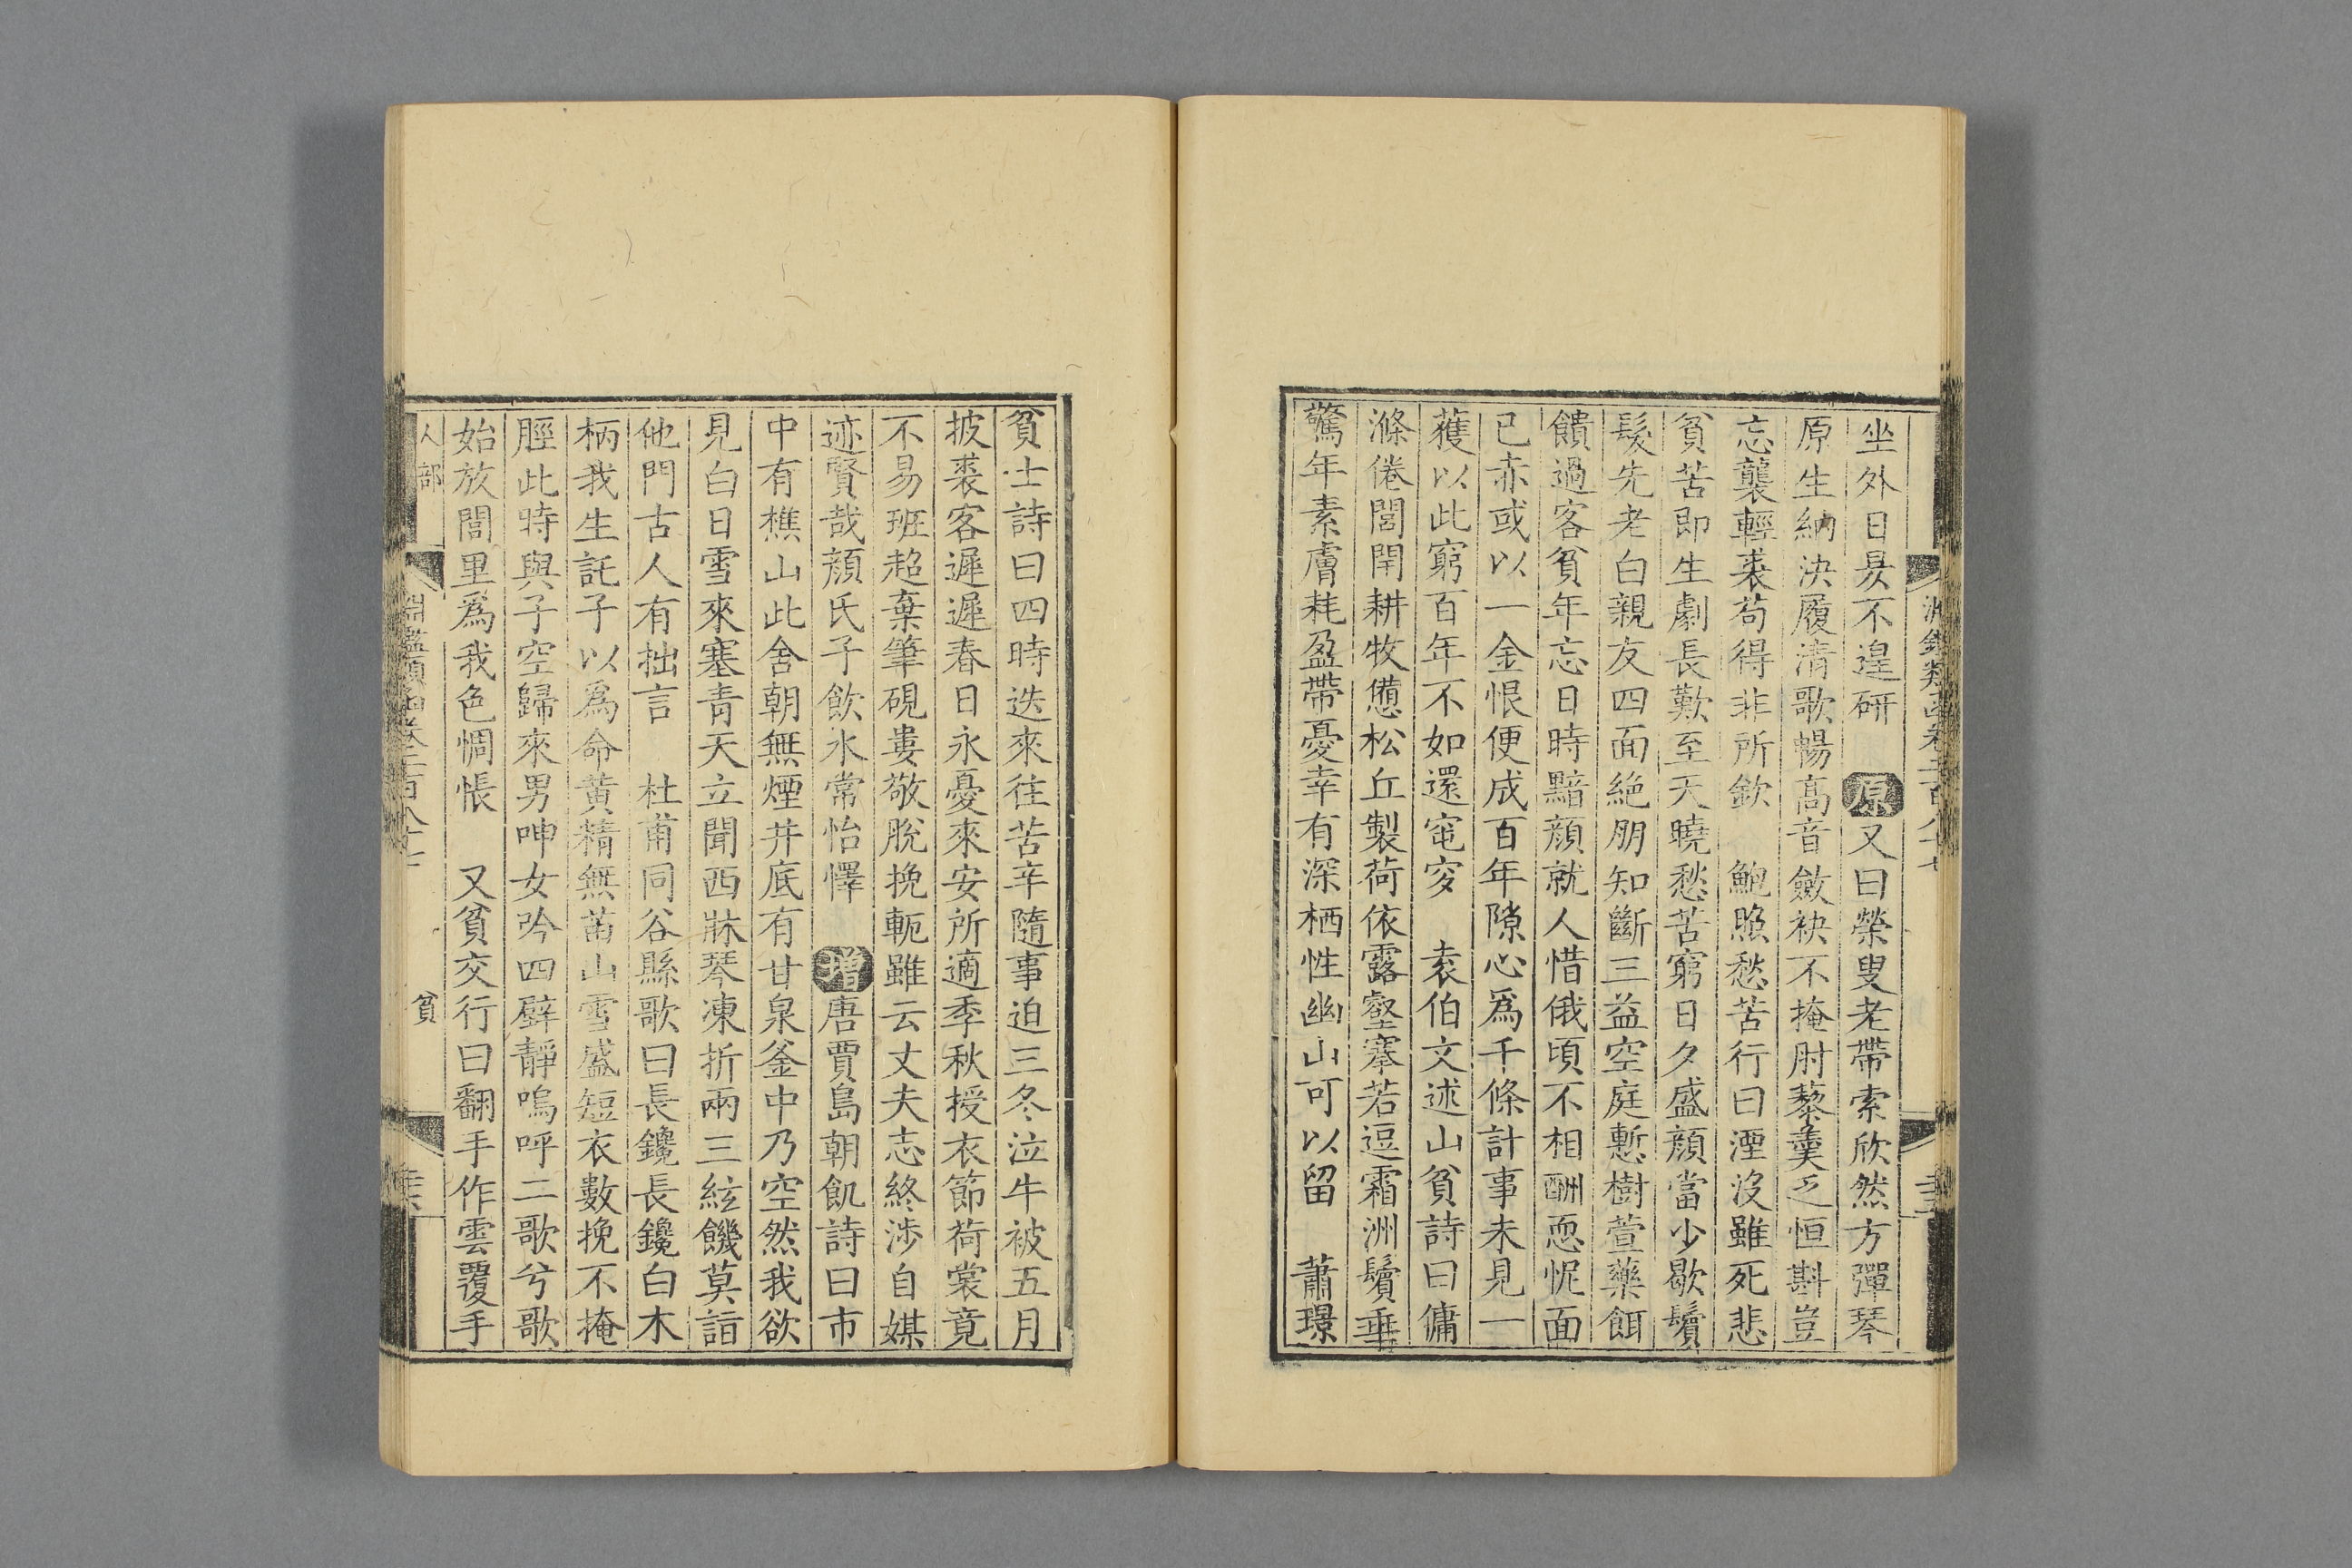 坐外日昃不遑研　原又曰榮叟老帶索欣然方彈琴
原生納決履清歌暢高音斂袂不掩肘藜羹乏恒斟豈
忘襲輕裘苟得非所欽　鮑照愁苦行曰湮沒雖死悲
貧苦即生劇長歎至天曉愁苦窮日夕盛顏當少歇鬢
髮先老白親友四面絕朋知斷三益空庭慙樹萱藥餌
饋過客貧年忘日時黯顏就人惜俄頃不相酬恧怩面
已赤或以一金恨便成百年隙心爲千條計事未見一
蒦以此窮百年不如還窀穸　袁伯文述山貧詩曰傭
滌倦閭閈耕牧憊松丘製荷依露壑搴若逗霜洲鬢垂
驚年素膚耗盈帶憂幸有深栖性幽山可以留　蕭璟
貧士詩曰四時迭來往苦辛隨事迫三冬泣牛被五月
披裘客遲遲春日永憂來安所適季秋授衣節荷裳竟
不易班超棄筆硯婁敬脫挽軛雖云丈夫志終涉自媒
迹賢哉顏氏子飲水常怡懌　增唐賈島朝飢詩曰市
中有樵山此舍朝無煙井底有甘泉釜中乃空然我欲
見白日雪來塞青天立聞西牀琴凍折兩三絃饑莫詣
他門古人有拙言　杜甫同谷縣歌曰長鑱長鑱白木
柄我生託子以爲命黃精無苗山雪盛短衣數挽不掩
脛此時與子空歸來男呻女吟四壁靜嗚呼二歌兮歌
始放閭里爲我色惆悵　又貧交行曰翻手作雲覆手
人部
淵鑑類函卷二百八十七
貧